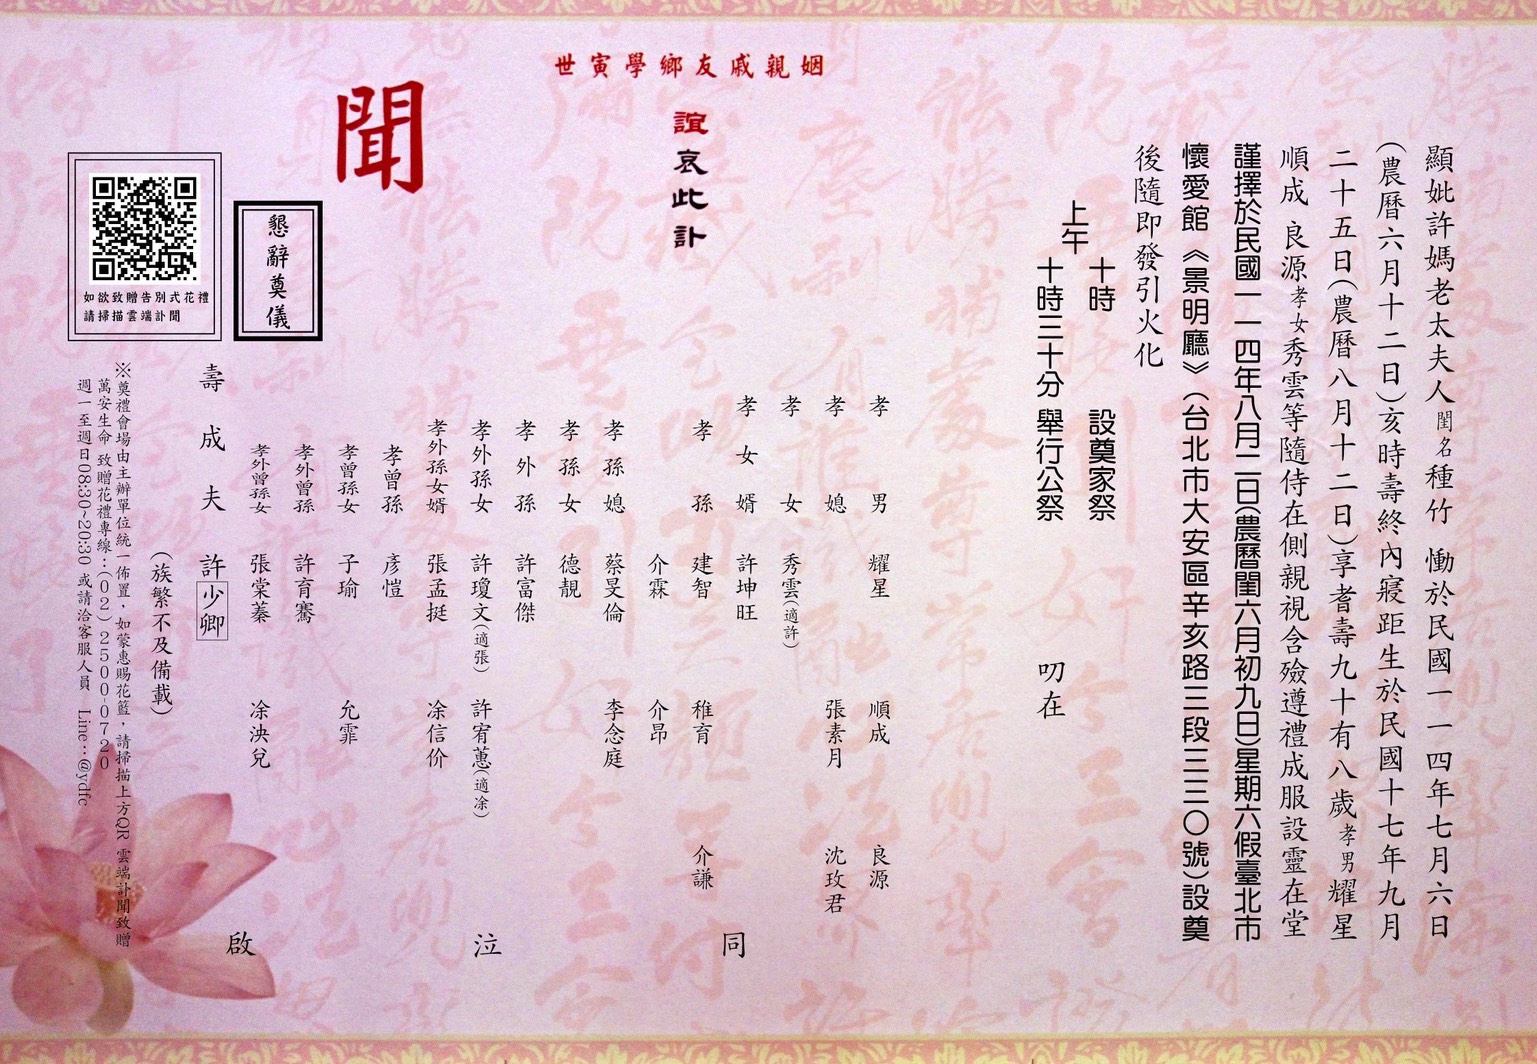 顯妣許媽老太夫人閨名種竹 慟於民國一一四年七月六日
(農曆六月十二日)亥時壽終內寢距生於民國十七年九月
二十五日(農曆八月十二日)享耆壽九十有八歲孝男耀星
順成 良源孝女秀雲等隨侍在側親視含殮遵禮成服設靈在堂
謹擇於民國一一四年八月二日(農曆閏六月初九日)星期六假臺北市
懷愛館《景明廳》(台北市大安區辛亥路三段三三〇號)設奠
後隨即發引火化
上午
十時 設奠家祭
十時三十分 舉行公祭
叨在
姻親戚友鄉學寅世
誼哀此訃
聞
孝男 耀星 順成 良源
孝媳 張素月 沈玫君
孝女 秀雲(適許)
孝女婿 許坤旺
孝孫 建智 稚育 介謙
介霖 介昂
孝孫媳 蔡旻倫 李念庭
孝孫女 德靚
孝外孫 許富傑
孝外孫女 許瓊文(適張) 許宥蕙(適凃)
孝外孫女婿 張孟挺 凃信价
孝曾孫 彥愷
孝曾孫女 子瑜 允霏
孝外曾孫 許育騫
孝外曾孫女 張棠蓁 凃泱兒
壽成夫 許少卿
同
泣
啟
(族繁不及備載)
懇辭奠儀
如欲致贈告別式花禮
請掃描雲端訃聞
※奠禮會場由主辦單位統一佈置，如蒙惠賜花籃，請掃描上方QR 雲端訃聞致贈
萬安生命 致贈花禮專線：(02) 2500-0720
週一至週日08:30~20:30 或請洽客服人員 Line：@ydfc